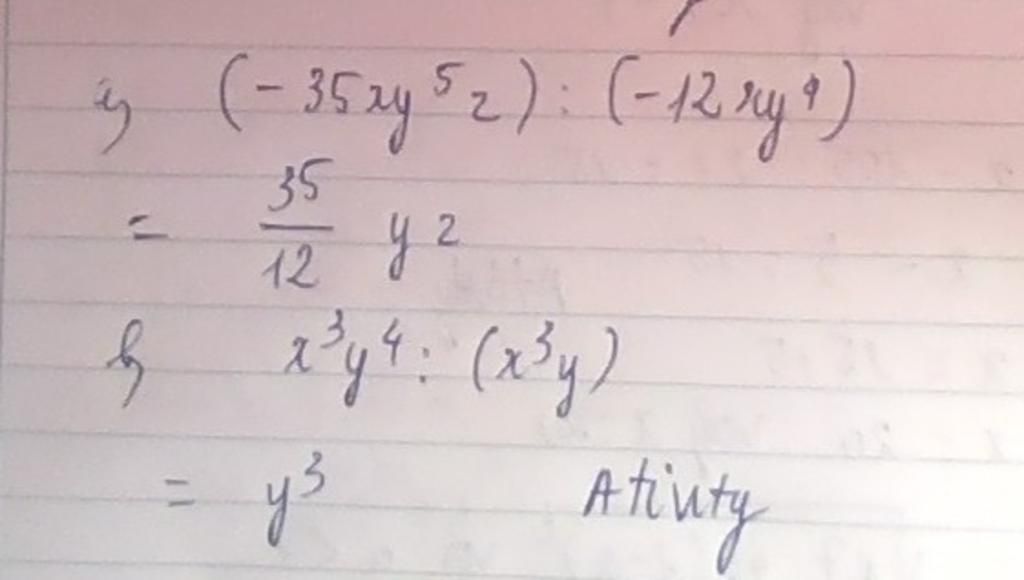 (-35xy⁵z) : (-12xy⁴)
= 35/12 yz
x³y⁴ : (x³y)
= y³ Ativity